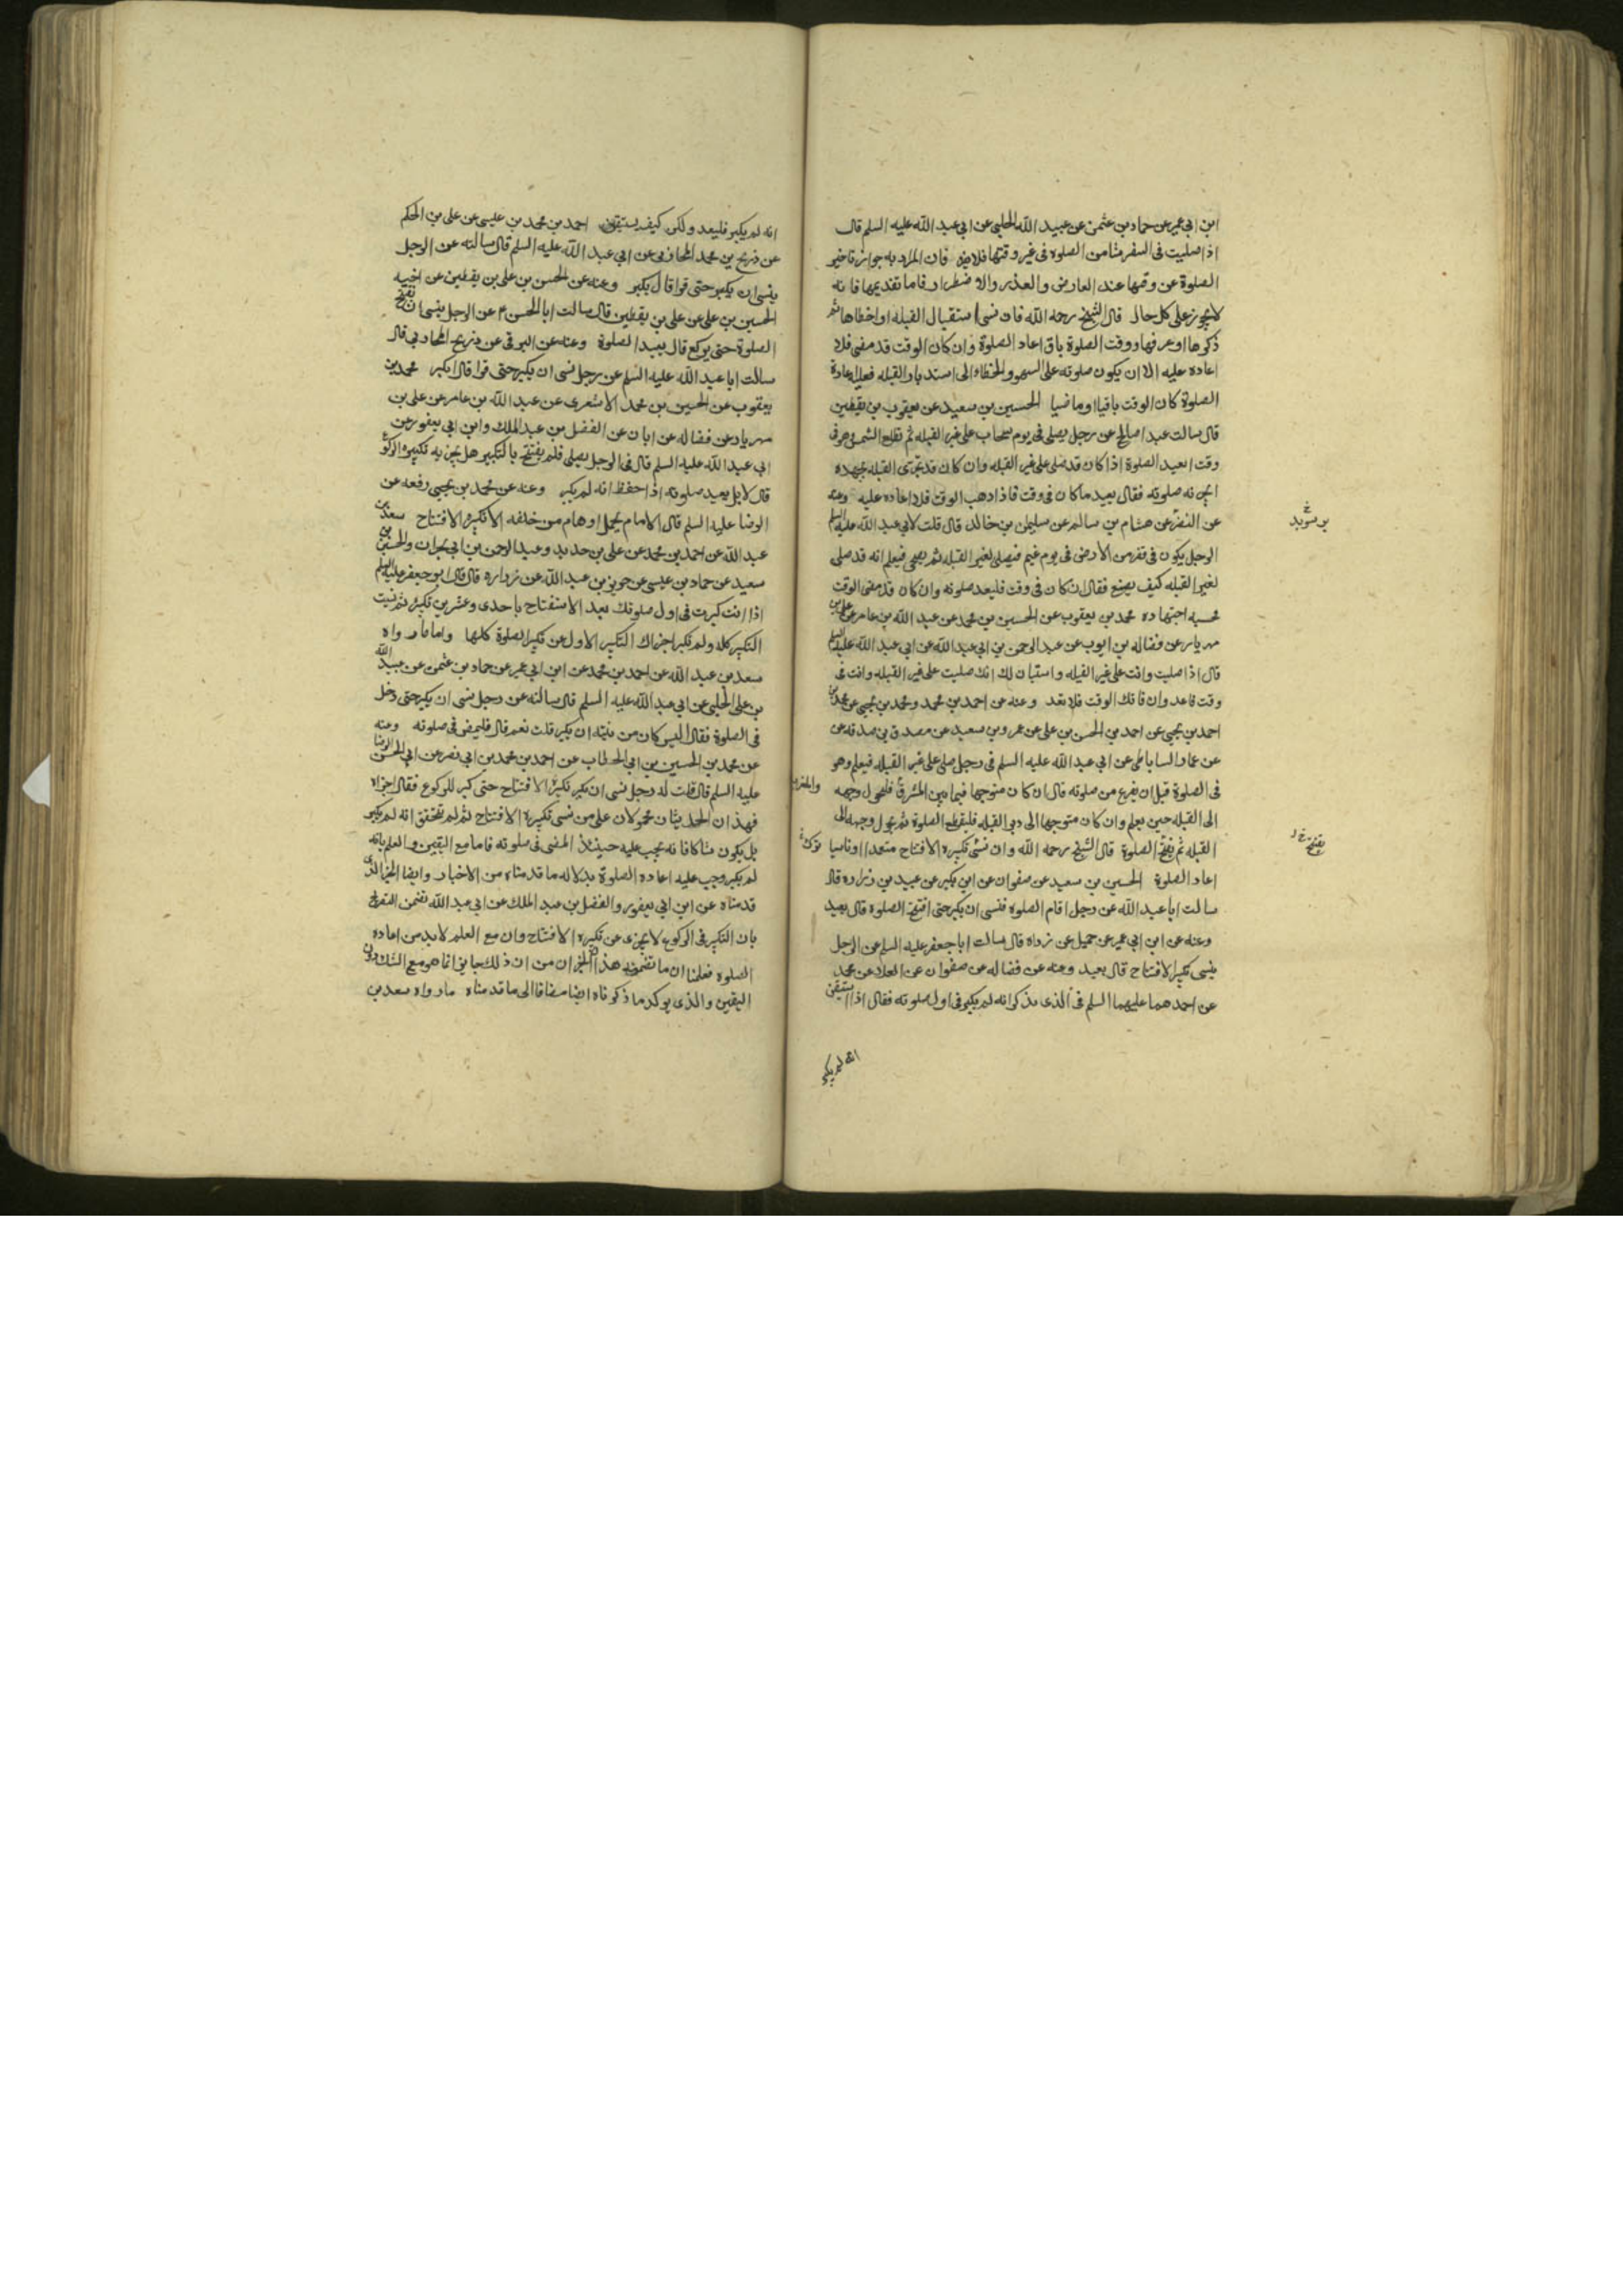 ابن ابي عمير عن حماد بن عثمن عن عبيد الله الحلبي عن ابي عبد الله عليه السلم قال
اذا صليت في السفر شيا من الصلوة في غير وقتها فلا يضر فان المراد به جواز تاخير
الصلوة عن وقتها عند العارض والعذر والاضطرار فاما تقديمها فانه
لا يجوز على كل حال قال الشيخ رحمه الله فان نسي استقبال القبله او اخطاها ثم
ذكرها او عرفها ووقت الصلوة باق اعاد الصلوة وان كان الوقت قد مضى فلا
اعاده عليه الا ان يكون صلوته على السهو والخطاء الى استدبار القبله فعليه اعادة
الصلوة كان الوقت باقيا او ماضيا الحسين بن سعيد عن يعقوب بن يقطين
قال سالت عبدا صالحا عن رجل يصلي في يوم سحاب على غير القبله ثم تطلع الشمس وهو في
وقت ايعيد الصلوة اذا كان قد صلى على غير القبله وان كان قد تحرى القبله بجهده
ايجزئه صلوته فقال يعيد ما كان في وقت فاذا ذهب الوقت فلا اعاده عليه وعنه
عن النضر عن هشام بن سالم عن سليمن بن خالد قال قلت لابي عبد الله عليه السلم
بن سويد
الرجل يكون في قفر من الارض في يوم غيم فيصلي لغير القبله ثم يصحي فيعلم انه قد صلى
لغير القبله كيف يصنع فقال ان كان في وقت فليعد صلوته وان كان قد مضى الوقت
فحسبه اجتهاده محمد بن يعقوب عن الحسين بن محمد عن عبد الله بن عامر عن علي بن
مهزيار عن فضاله بن ايوب عن عبد الرحمن بن ابي عبد الله عن ابي عبد الله عليه السلم
قال اذا صليت وانت على غير القبله واستبان لك انك صليت على غير القبله وانت في
وقت فاعد وان فاتك الوقت فلا تعد وعنه عن احمد بن محمد ومحمد بن يحيى عن محمد بن
احمد بن يحيى عن احمد بن الحسن بن علي عن عمرو بن سعيد عن مصدق بن صدقه عن
عن عمار الساباطي عن ابي عبد الله عليه السلم في رجل صلى على غير القبله فيعلم وهو
في الصلوة قبل ان يفرغ من صلوته قال ان كان متوجها فيما بين المشرق فليحول وجهه
والمغرب
الى القبله حين يعلم وان كان متوجها الى دبر القبله فليقطع الصلوة ثم يحول وجهه الى
القبله ثم يفتح الصلوة قال الشيخ رحمه الله وان نسي تكبيره الافتتاح متعمدا او ناسيا
ترك
يفتتح
اعاد الصلوة الحسين بن سعيد عن صفوان عن ابن بكير عن عبيد بن زراره قال
سالت ابا عبد الله عن رجل اقام الصلوه فنسي ان يكبر حتى افتتح الصلوه قال يعيد
وعنه عن ابن ابي عمير عن جميل عن زراه قال سالت ابا جعفر عليه السلم عن الرجل
ينسى تكبير الافتتاح قال يعيد وعنه عن فضاله عن صفوان عن العلا عن محمد
عن احدهما عليهما السلم في الذي يذكر انه لم يكبر في اول صلوته فقال اذا استيقن
انه لم يكبر
انه لم يكبر فليعد ولكن كيف يستيقن احمد بن محمد بن عيسى عن علي بن الحكم
عن ذريح بن محمد المحاربي عن ابي عبد الله عليه السلم قال سالته عن الرجل
ينسى ان يكبر حتى قرا قال يكبر وعنه عن الحسن بن علي بن يقطين عن اخيه
الحسين بن علي عن علي بن يقطين قال سالت ابا الحسن ع عن الرجل ينسى ان يفتتح
الصلوة حتى يركع قال يعيد الصلوة وعنه عن البرقي عن ذريح المحاربي قال
سالت ابا عبد الله عليه السلم عن رجل نسي ان يكبر حتى قرا قال يكبر محمد بن
يعقوب عن الحسين بن محمد الاشعري عن عبد الله بن عامر عن علي بن
مهزيار عن فضاله عن ابان عن الفضل بن عبد الملك وابن ابي يعفور عن
ابي عبد الله عليه السلم قال في الرجل يصلي فلم يفتتح بالتكبير هل يجزيه تكبيره الركوع
قال لا بل يعيد صلوته اذا حفظ انه لم يكبر وعنه عن محمد بن يحيى رفعه عن
الرضا عليه السلم قال الامام يحمل اوهام من خلفه الا تكبيره الافتتاح سعد بن
عبد الله عن احمد بن محمد عن علي بن حديد وعبد الرحمن بن ابي نجران والحسين بن
سعيد عن حماد بن عيسى عن حريز بن عبد الله عن زراره قال قال ابو جعفر عليه السلم
اذا انت كبرت في اول صلوتك بعد الاستفتاح باحدى وعشرين تكبيره ثم نسيت
التكبير كله ولم تكبر اجزاك التكبير الاول عن تكبير الصلوة كلها واما ما رواه
سعد بن عبد الله عن احمد بن محمد عن ابن ابي عمير عن حماد بن عثمن عن عبيد الله
بن علي الحلبي عن ابي عبد الله عليه السلم قال سالته عن رجل نسي ان يكبر حتى دخل
في الصلوة فقال اليس كان من نيته ان يكبر قلت نعم قال فليمض في صلوته وعنه
عن محمد بن الحسين بن ابي الخطاب عن احمد بن محمد بن ابي نصر عن ابي الحسن الرضا
عليه السلم قال قلت له رجل نسي ان يكبر تكبيره الافتتاح حتى كبر للركوع فقال اجزاه
فهذان الحديثان محمولان على من نسي تكبيره الافتتاح ثم لم يتحقق انه لم يكبر
بل يكون شاكا فانه يجب عليه حينئذ المضي في صلوته فاما مع اليقين والعلم بانه
لم يكبر وجب عليه اعاده الصلوة بدلاله ما قدمناه من الاخبار وايضا الخبر الذي
قدمناه عن ابن ابي يعفور والفضل بن عبد الملك عن ابي عبد الله تضمن التصريح
بان التكبير في الركوع لا يجزي عن تكبيره الافتتاح وان مع العلم لا بد من اعاده
الصلوه فعلمنا ان ما تضمنه هذا الخبران من ان ذلك جايز انما هو مع الشك دون
اليقين والذي يوكد ما ذكرناه ايضا مضافا الى ما قدمناه ما رواه سعد بن